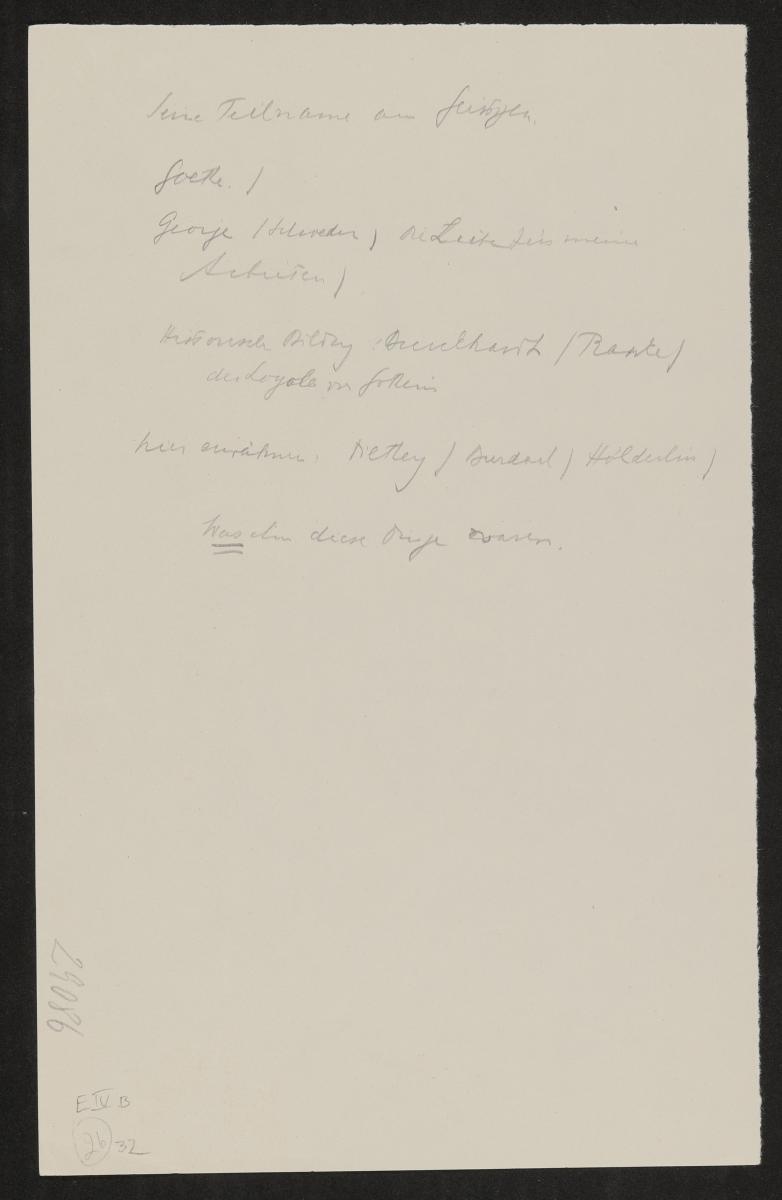 Seine Teilname am Geistigen.
Goethe. /
George / Schroeder / die
Arbeiten /
Historische Bildg : Burckhardt / Ranke /
der Loyola von Gothein
hier erwähnen. Dilthey / Burdach / Hölderlin /
Was ihm diese Dinge waren.
29086
E IV B
26 32